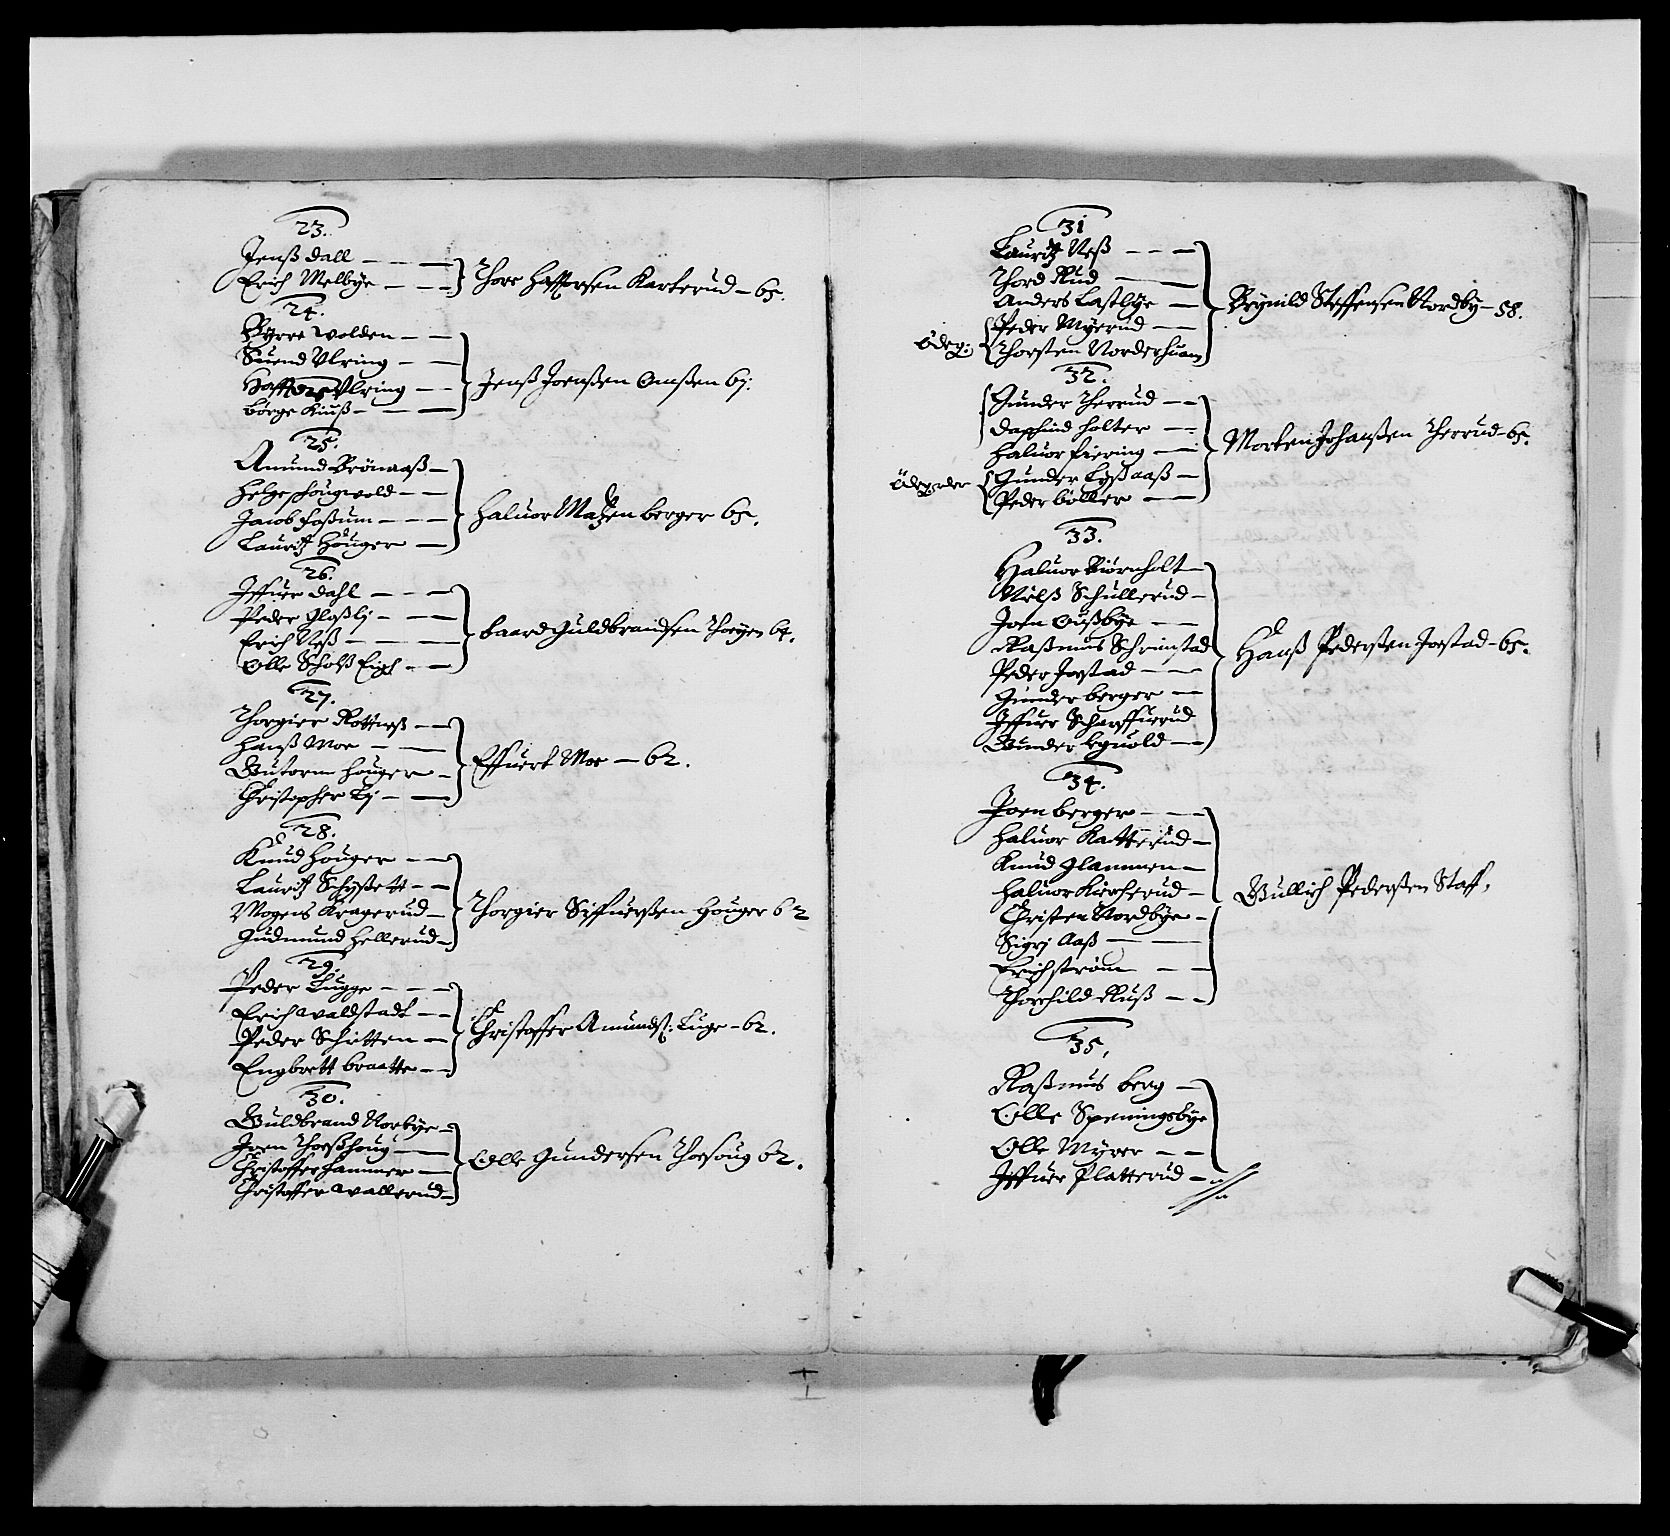 23.
Jenß Dall
Erich Melbye
Thore Haffuorsen Karterud - 65.
24.
Byrre Wolden
Suend Ulring
Haffuor Ulring
Børge Kiuß
Jenß Joenßen Omßen 61.
25.
Amund Brönaaß
Helge schougwold
Jacob Foßum
Lauritz Höuger
Haluor Matzen berger 65.
26.
Iffuer Dahl
Peder Gloßli
Erich Neß
Olle Scholß Eigh
baard Guldbrandsen Thoeyen 64.
27.
Thorgier Rottneß
Hanß Moe
Guttorm Houger
Christopher Lij
Effuert Moe - 62.
28.
Knud Houger
Lauritz Schysett
Mogens Kragerud
Gudmund Hellerud
Thorgier Siffuerßen Houger 62
29.
Peder Lugge
Erich Waldstadt
Peder Schetten
Engbrett braatte
Christoffer Amundß: Luge - 62.
30.
Guldbrand Norbye
Joen Thoeshoug
Christoffer hammer
Christoffer Wallerud
Olle Gundersen Thoesoug 62.
31
Lauritz Neß
Thord Rud
Anders Lastlye
Peder Myrerud
Ödeg: Thorsten Norderhuam
Reynild Steffensen Nordby - 58.
32.
Gunder Therrud
Daghind Holter
Haluor fiering
Ödegorder Gunder Lyßaaß
Peder böller
Morten Johanßen Therrud - 65.
33.
Haluor Biörnholt
Nielß Schullerud
Joen Oußbye
Raßmus Schrimstad
Peder Joestad
Gunder berger
Iffuer Scharffuerud
Gunder Eguold
Hanß Pederßen Joestad - 65.
34.
Joen berger
Haluor Katterud
Knud Glammen
Haluor Kircherud
Christen Nordbye
Sigri Aaß
Erich ström
Thorchild Ruß
Gullich Pederßen Staff.
35.
Raßmus berg
Olle Speningsbye
Olle Myrer
Iffuer Platterud